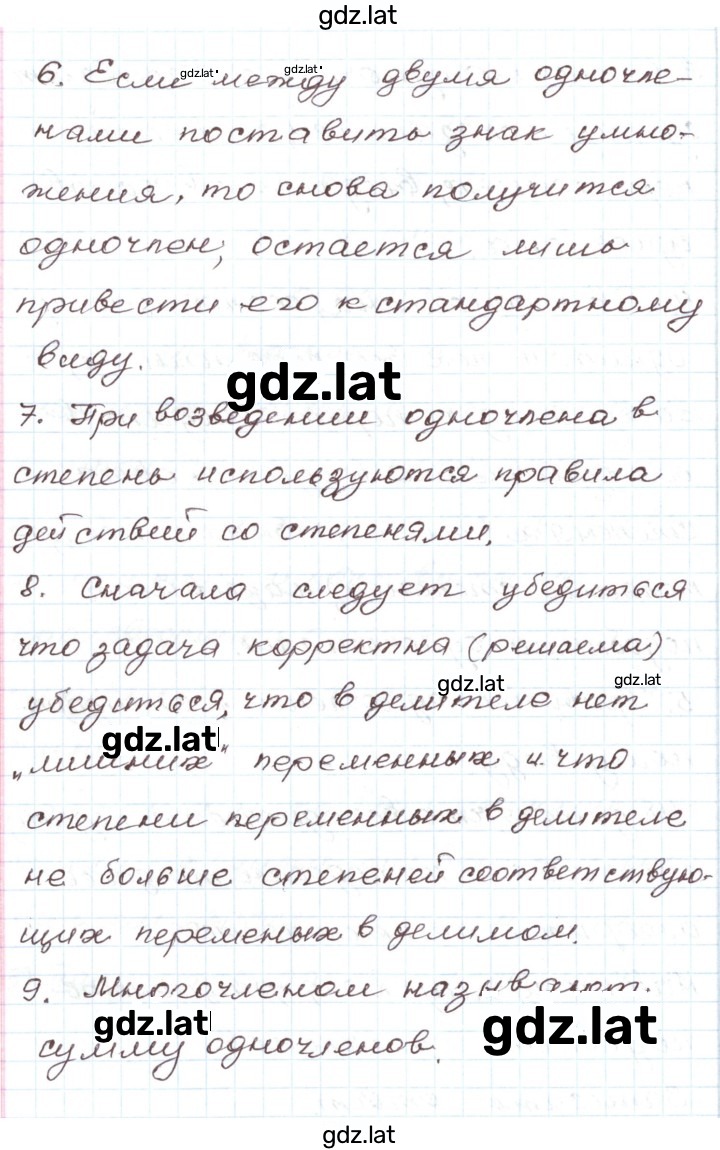 gdz.lat
6. Если между двумя одночле-
gdz.lat gdz.lat
нами поставить знак умно-
жения, то снова получится
одночлен, остается лишь
привести его к стандартному
виду.
gdz.lat
7. При возведении одночлена в
степень используются правила
действий со степенями.
8. Сначала следует убедиться
что задача корректна (решаема)
gdz.lat gdz.lat
убедиться, что в делителе нет
gdz.lat
„лишних" переменных и что
степени переменных в делителе
не больше степеней соответствую-
щих переменых в делимом.
9. Многочленом назвают
gdz.lat gdz.lat
сумму одночленов.
gdz.lat